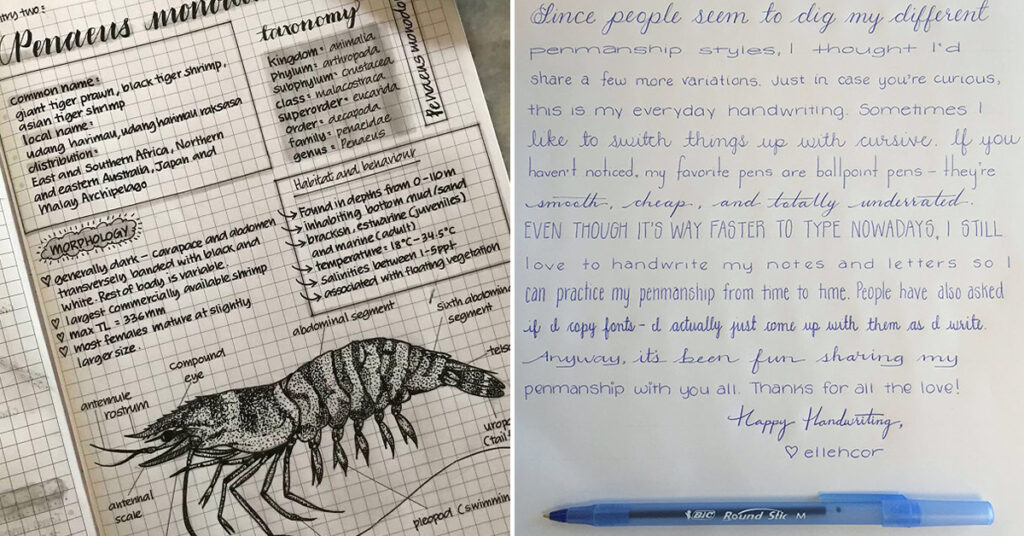 try two:
Penaeus monod
common name:
giant tiger prawn, black tiger shrimp,
asian tiger shrimp
local name:
udang harimau, udang harimau raksasa
distribution:
East and Southern Africa, Northern
and eastern Australia, Japan and
Malay Archipelago
taxonomy
Kingdom: animalia
phylum: arthropoda
subphylum: crustacea
class: malacostraca
superorder: eucarida
order: decapoda
family: penaeidae
genus: Penaeus
Penaeus monodo
MORPHOLOGY
♡ generally dark - carapace and abdomen
transversely banded with black and
white. Rest of body is variable.
♡ largest commercially available shrimp
♡ max TL = 336mm
♡ most females mature at slightly
larger size.
Habitat and behaviour
Found in depths from 0-110m
inhabiting bottom mud/sand
bracksh, estuarine (juveniles)
and marine (adult)
temperature = 18°C - 34.5°C
salinities between 1-5ppt
associated with floating vegetation
abdominal segment
sixth abdomina
segment
telso
compound
eye
antennule
rostrum
antennal
scale
urop
(tail
pleopod (swimmin
Since people seem to dig my different
penmanship styles, I thought I'd
share a few more variations. Just in case you're curious,
this is my everyday handwriting. Sometimes I
like to switch things up with cursive. If you
haven't noticed, my favorite pens are ballpoint pens - they're
smooth, cheap, and totally underrated.
EVEN THOUGH IT'S WAY FASTER TO TYPE NOWADAYS, I STILL
love to handwrite my notes and letters so I
can practice my penmanship from time to time. People have also asked
if I copy fonts - I actually just come up with them as I write.
Anyway, it's been fun sharing my
penmanship with you all. Thanks for all the love!
Happy Handwriting,
♡ ellehcor
BIC Round Stic M